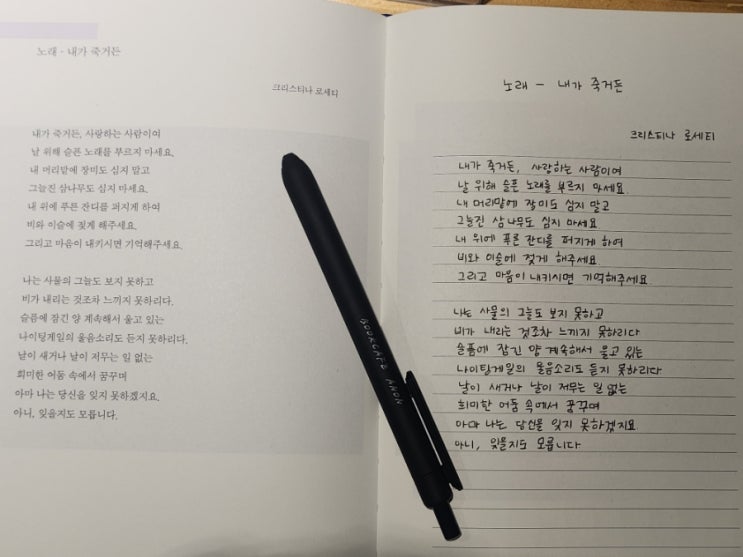 노래 - 내가 죽거든
크리스티나 로세티
내가 죽거든, 사랑하는 사람이여
날 위해 슬픈 노래를 부르지 마세요.
내 머리맡에 장미도 심지 말고
그늘진 삼나무도 심지 마세요.
내 위에 푸른 잔디를 퍼지게 하여
비와 이슬에 젖게 해주세요.
그리고 마음이 내키시면 기억해주세요.
나는 사물의 그늘도 보지 못하고
비가 내리는 것조차 느끼지 못하리다.
슬픔에 잠긴 양 계속해서 울고 있는
나이팅게일의 울음소리도 듣지 못하리다.
날이 새거나 날이 저무는 일 없는
희미한 어둠 속에서 꿈꾸며
아마 나는 당신을 잊지 못하겠지요.
아니, 잊을지도 모릅니다.
BOOKCAFE ANON
노래 - 내가 죽거든
크리스티나 로세티
내가 죽거든, 사랑하는 사람이여
날 위해 슬픈 노래를 부르지 마세요.
내 머리맡에 장미도 심지 말고
그늘진 삼나무도 심지 마세요
내 위에 푸른 잔디를 퍼지게 하여
비와 이슬에 젖게 해주세요
그리고 마음이 내키시면 기억해주세요
나는 사물의 그늘도 보지 못하고
비가 내리는 것조차 느끼지 못하리다
슬픔에 잠긴 양 계속해서 울고 있는
나이팅게일의 울음소리도 듣지 못하리다
날이 새거나 날이 저무는 일 없는
희미한 어둠 속에서 꿈꾸며
아마 나는 당신을 잊지 못하겠지요
아니, 잊을지도 모릅니다